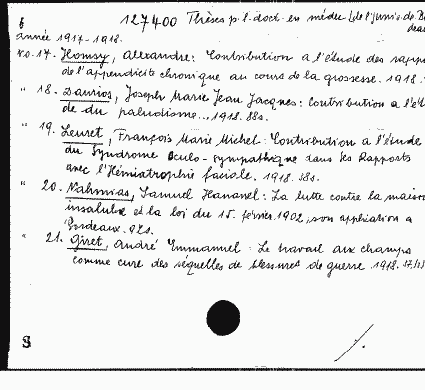 6 127400 Thèses p. l. doct. en médec. (de l'Univ. de B
année 1917-1918.
No. 17. Homsy, Alexandre: Contribution a l'étude des rapp
de l'appendicite chronique au cours de la grossesse. 1918.
" 18. Daurios, Joseph Marie Jean Jacques: Contribution a l'ét
de du paludisme... 1918. 88s.
" 19. Leuret, François Marie Michel: Contribution a l'étude
du Syndrome Oculo-sympathique dans les Rapports
avec l'Hémiatrophie faciale. 1918. 38s.
" 20. Nahmias, Samuel Hananel: La lutte contre la maison
insalubre et la loi du 15. février 1902, son application a
Bordeaux. 92s.
" 21. Giret, André Emmanuel: Le travail aux champs
comme cure des séquelles de blessures de guerre 1918.
S